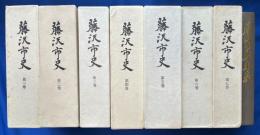 藤沢市史
第一巻
藤沢市史
第二巻
藤沢市史
第三巻
藤沢市史
第四巻
藤沢市史
第五巻
藤沢市史
第六巻
藤沢市史
第七巻